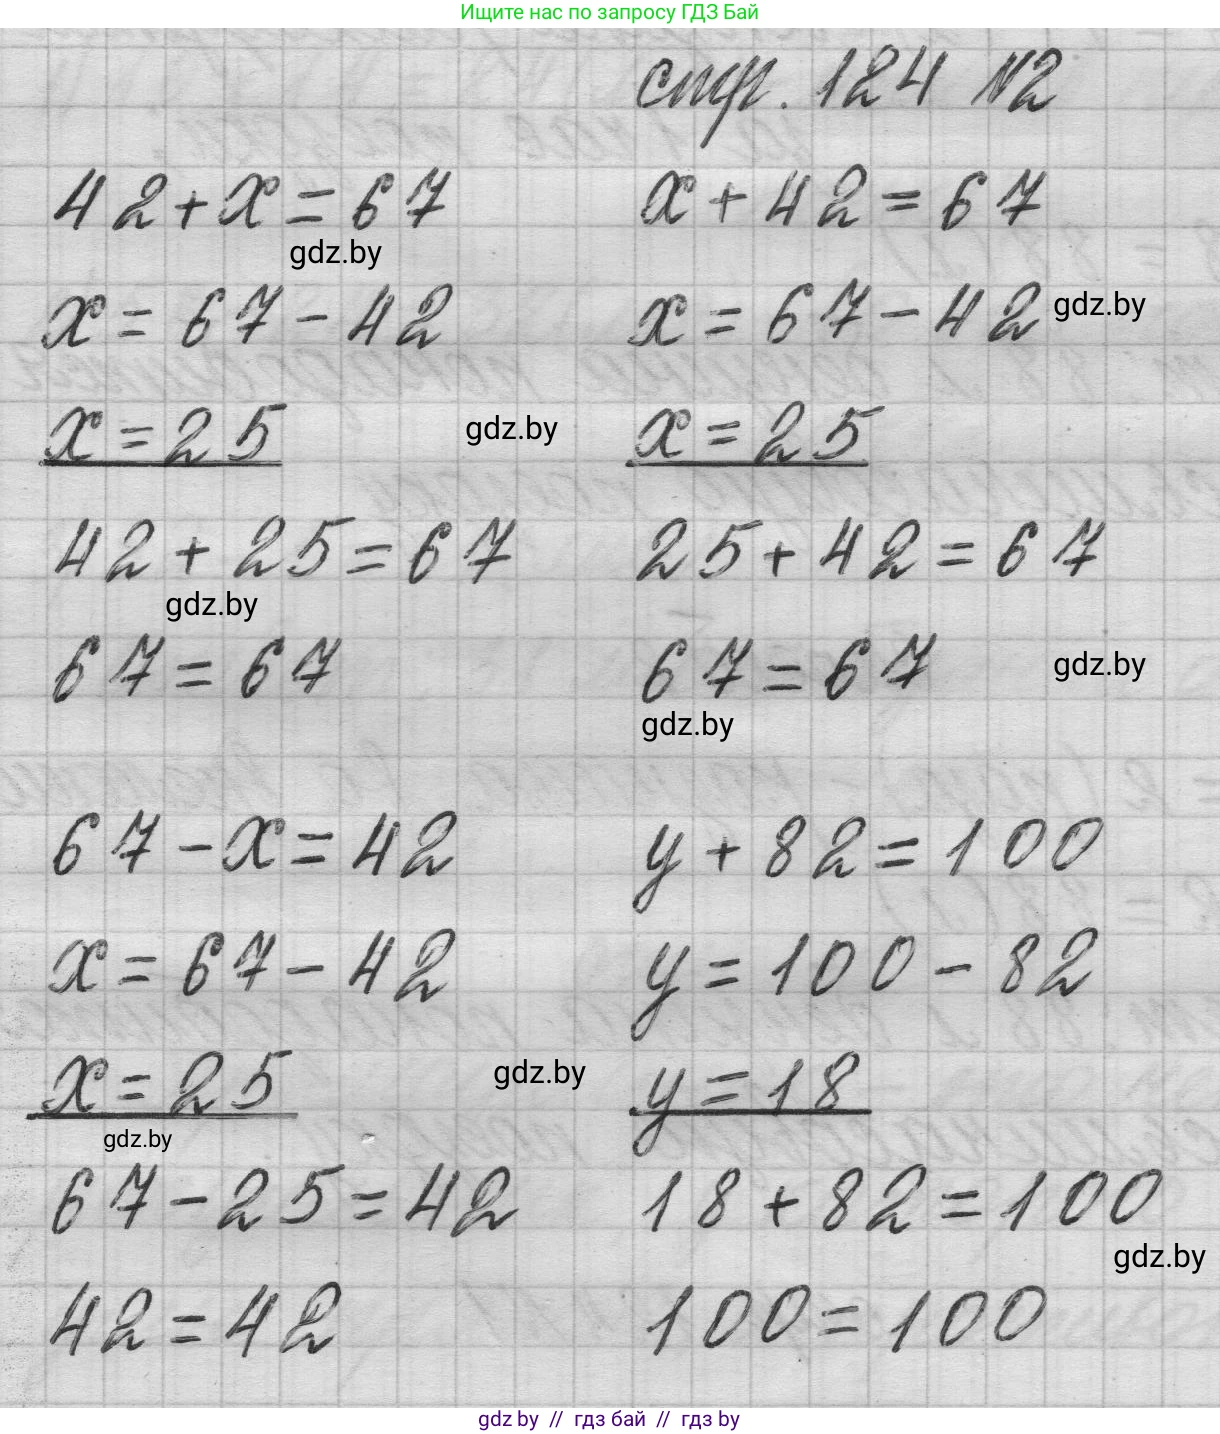 Ищите нас по запросу ГДЗ Бай
стр. 124 №2
42+x=67
gdz.by
x=67-42
x=25
42+25=67
gdz.by
67=67
x+42=67
x=67-42 gdz.by
gdz.by
x=25
25+42=67
67=67
gdz.by
gdz.by
67-x=42
x=67-42
x=25
gdz.by
67-25=42
42=42
y+82=100
y=100-82
gdz.by
y=18
18+82=100
gdz.by
100=100
gdz.by // гдз бай // гдз by